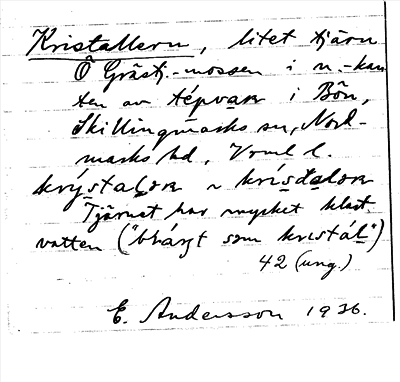 Kristallern, litet tjärn
Ö Grästj.-mossen i n.-kan
ten av tépvan i Bön,
Skillingmarks sn, Nord-
marks hd, Vrml l.
krýstalon ~ krísdalon
Tjärnet har mycket klart
vatten ("blargt som kristál")
42 (ung.)
E. Andersson 1936.